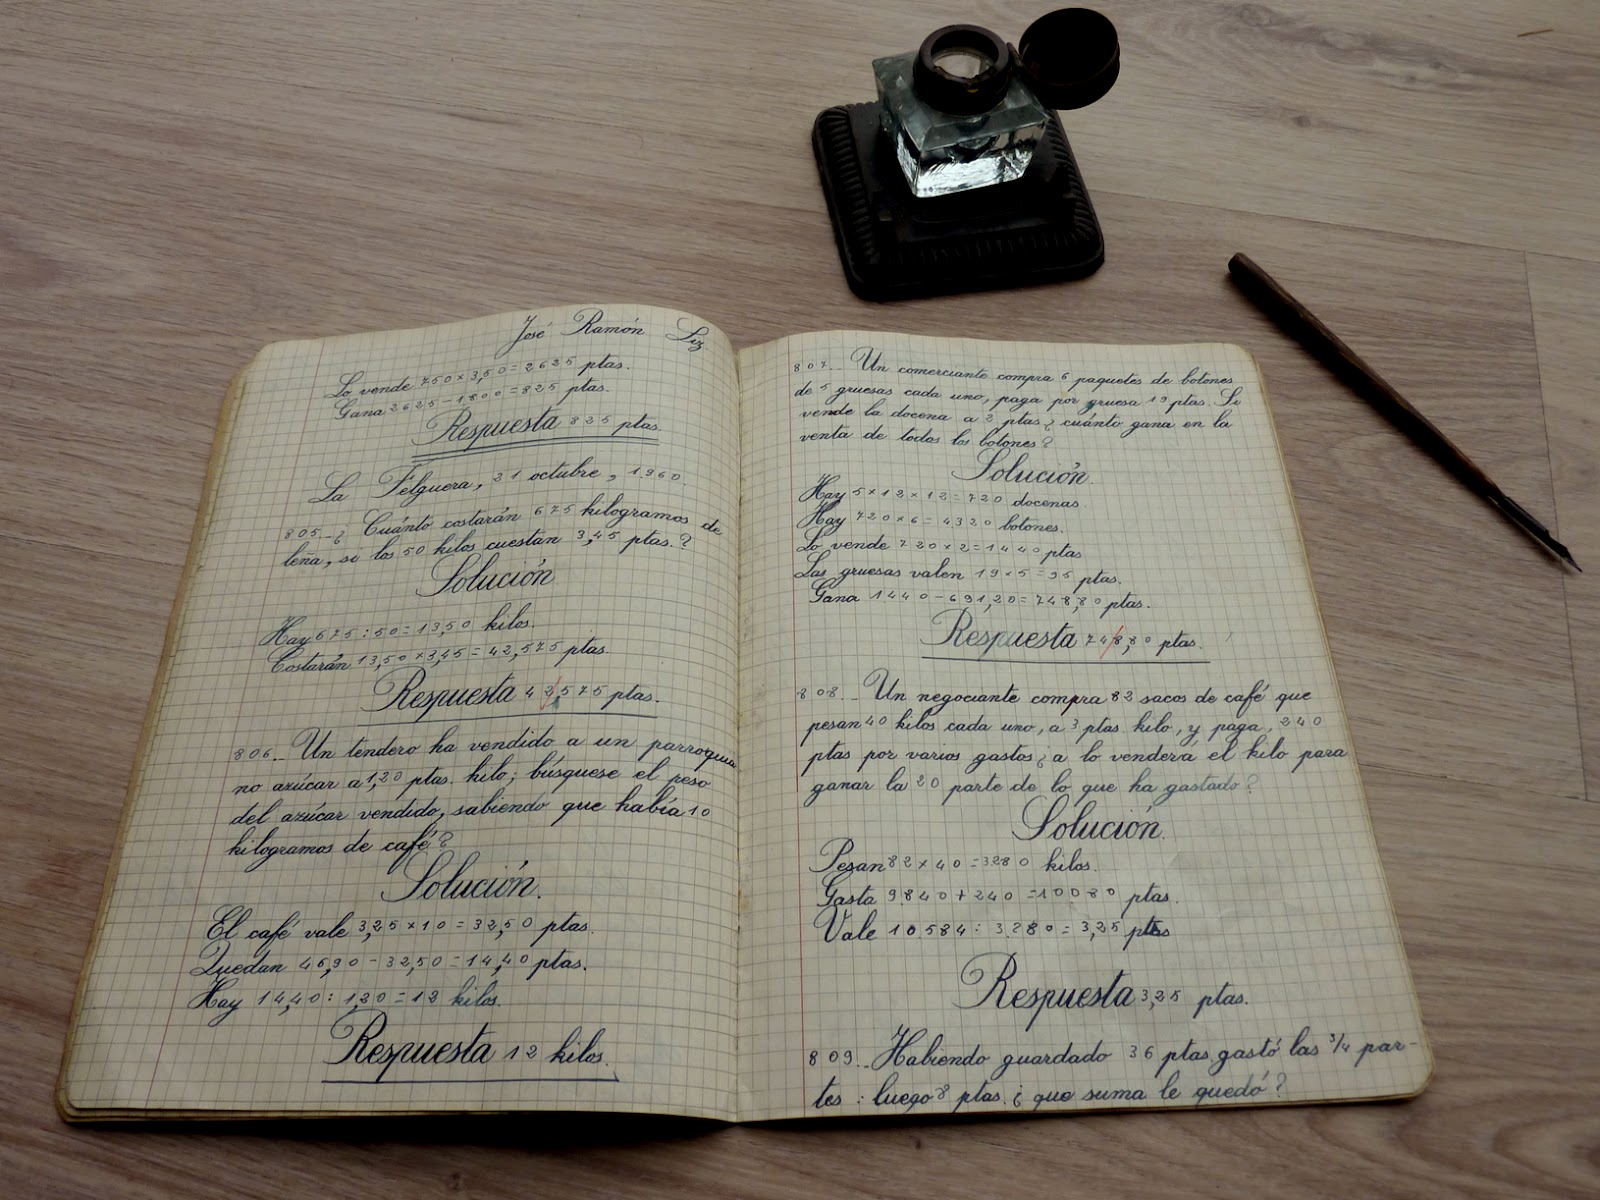 José Ramón Liz
Lo vende 750 x 3,50 = 2625 ptas.
Gana 2625 - 1.800 = 825 ptas.
Respuesta 825 ptas.
La Felguera, 21 octubre, 1.960.
805.-¿Cuánto costarán 675 kilogramos de
leña, si los 50 kilos cuestan 3,45 ptas.?
Solución
Hay 675 : 50 = 13,50 kilos.
Costarán 13,50 x 3,45 = 42,575 ptas.
Respuesta 42,575 ptas.
806.- Un tendero ha vendido a un parroquia
no azúcar a 1,20 ptas. kilo; búsquese el peso
del azúcar vendido, sabiendo que había 10
kilogramos de café?
Solución.
El café vale 3,25 x 10 = 32,50 ptas.
Quedan 46,90 - 32,50 = 14,40 ptas.
Hay 14,40 : 1,20 = 12 kilos.
Respuesta 12 kilos.
807.- Un comerciante compra 6 paquetes de botones
de 5 gruesas cada uno, paga por gruesa 19 ptas. Si
vende la docena a 2 ptas ¿cuánto gana en la
venta de todos los botones?
Solución.
Hay 5 x 12 x 12 = 720 docenas.
Hay 720 x 6 = 4320 botones.
Lo vende 720 x 2 = 1440 ptas
Las gruesas valen 19 x 5 = 95 ptas.
Gana 1440 - 691,20 = 748,80 ptas.
Respuesta 748,80 ptas.
808.- Un negociante compra 82 sacos de café que
pesan 40 kilos cada uno, a 3 ptas kilo, y paga, 240
ptas por varios gastos ¿a lo venderá el kilo para
ganar la 20 parte de lo que ha gastado?
Solución.
Pesan 82 x 40 = 3280 kilos.
Gasta 9.840 + 240 = 10080 ptas.
Vale 10.584 : 3.280 = 3,25 ptas
Respuesta 3,25 ptas.
809.- Habiendo guardado 36 ptas, gastó las 3/4 par-
tes : luego 8 ptas. ¿que suma le quedó?